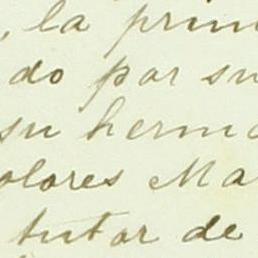 , la prim
do por su
su herma
olores Ma
tutor de